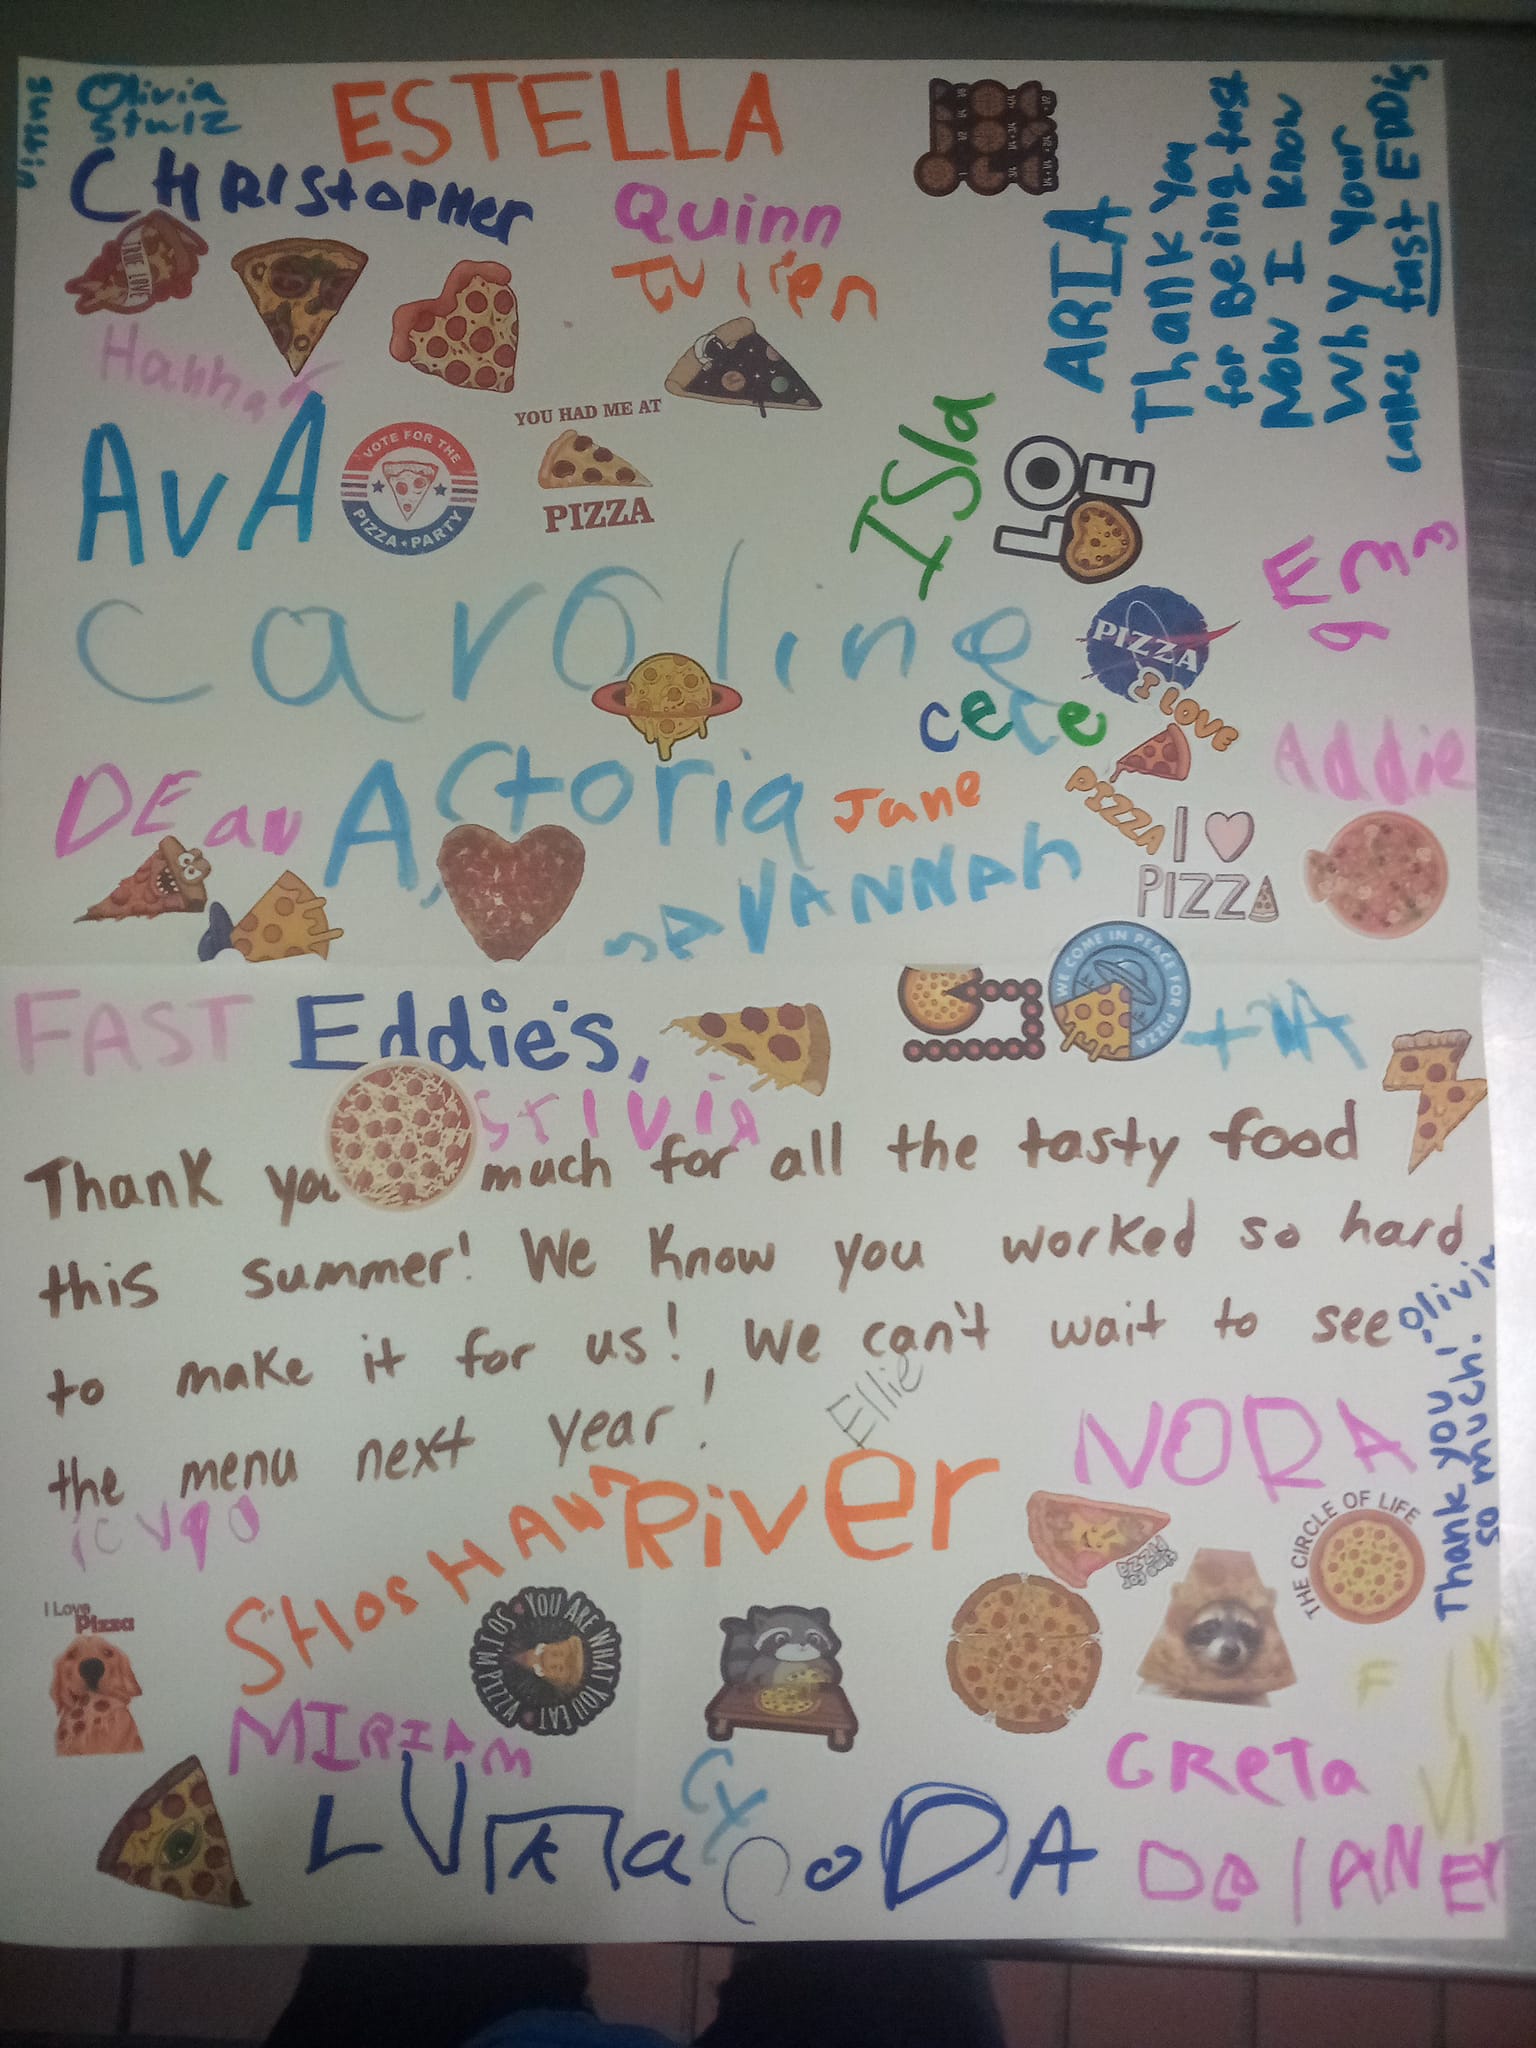 Olivia
ESTELLA
CHRIStOPHer
Quinn
Julien
TRUE LOVE
Hannah
AvA
VOTE FOR THE
PIZZA PARTY
YOU HAD ME AT
PIZZA
ARIA
Thank You
for Being fast
Now I Know
Why Your
called fast EDDis
ISla
LO E
Caroline
PIZZA
I LOVE
PIZZA
Cece
Addie
DEaN
Astoria
Jane
SAVANNAh
I
PIZZA
WE COME IN PEACE FOR PIZZA
FAST Eddie's,
Thank you much for all the tasty food
this summer! We know you worked so hard
to make it for us! We can't wait to see
the menu next year!
Ellie
Olivia
Thank you
so much!
NORA
RivEr
SHOSHANA
THE CIRCLE OF LIFE
I Love
Pizza
YOU ARE WHAT YOU EAT
SO I'M PIZZA
MIRIAM
CY
GReTa
FINN
DelANEY